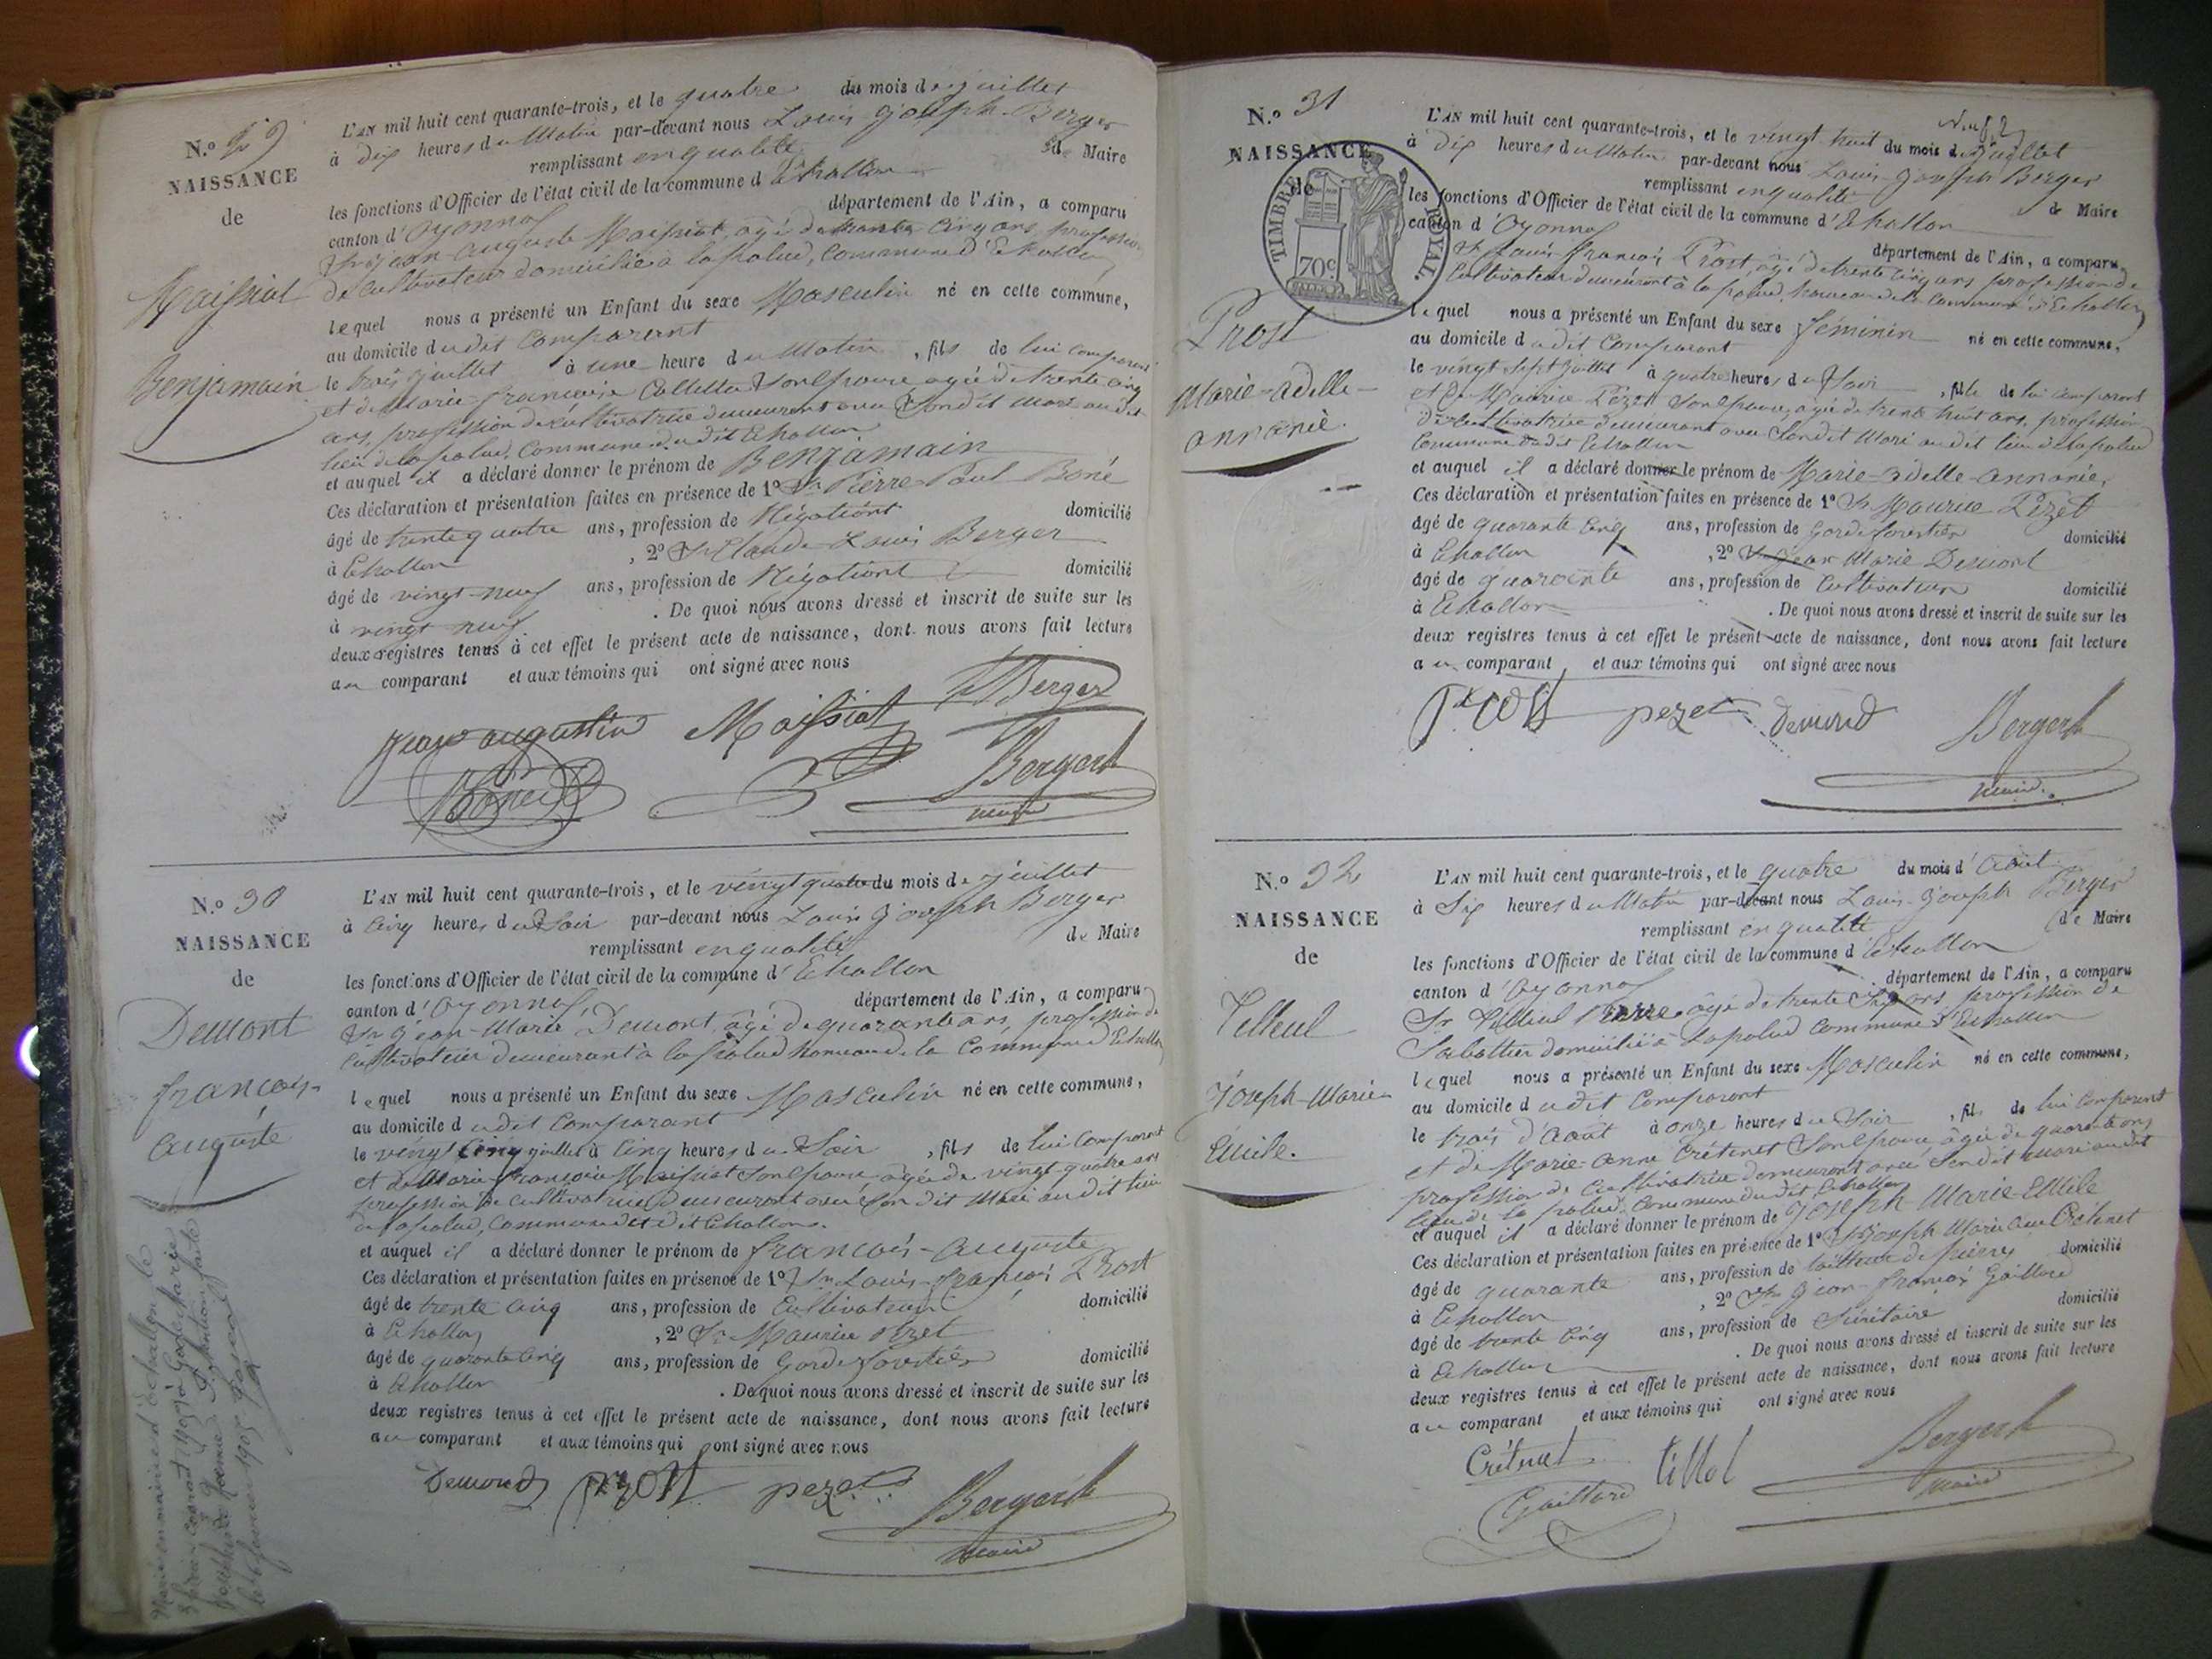 N.º 29
NAISSANCE
de
Maissiat
Benjamain
L'AN mil huit cent quarante-trois, et le quatre du mois de juillet
à dix heures du Matin par-devant nous Louis Joseph Berger
remplissant en qualité de Maire
les fonctions d'Officier de l'état civil de la commune d'Echallon
canton d'Oyonnaz département de l'Ain, a comparu
Sr Jean Auguste Maissiat, âgé de trente cinq ans, profession
de cultivateur domicilié à la palud, Commune d'Echallon
lequel nous a présenté un Enfant du sexe Masculin né en cette commune,
au domicile du dit Comparant
le trois juillet à une heure du Matin, fils de lui comparant
et de Marie françoise Son Epouse agée de trente cinq
ans, profession de cultivatrice demeurant avec Son dit mari au dit
lieu de la palud, Commune du dit Echallon
et auquel il a déclaré donner le prénom de Benjamain
Ces déclaration et présentation faites en présence de 1º Sr Pierre Paul Boné
âgé de trente quatre ans, profession de Négotiant domicilié
à Echallon, 2º Sr Claude Louis Berger
âgé de vingt-neuf ans, profession de Négotiant domicilié
à vingt neuf. De quoi nous avons dressé et inscrit de suite sur les
deux registres tenus à cet effet le présent acte de naissance, dont nous avons fait lecture
au comparant et aux témoins qui ont signé avec nous
Jean augustin Maissiat Berger
Berger
maire
N.º 30
NAISSANCE
de
Demont
françois
Auguste
L'AN mil huit cent quarante-trois, et le vingt quatre du mois de juillet
à cinq heures du Soir par-devant nous Louis Joseph Berger
remplissant en qualité de Maire
les fonctions d'Officier de l'état civil de la commune d'Echallon
canton d'Oyonnaz département de l'Ain, a comparu
Sr Jean-Marie Demont, âgé de quarante ans, profession de
cultivateur demeurant à la palud hameau de la Commune d'Echallon
lequel nous a présenté un Enfant du sexe Masculin né en cette commune,
au domicile du dit Comparant
le vingt cinq juillet à Cinq heures du Soir, fils de lui Comparant
et de Marie françoise Maissiat Son Epouse agée de vingt-quatre ans
profession de cultivatrice demeurant avec Son dit Mari au dit lieu
de la palud, Commune du dit Echallon.
et auquel il a déclaré donner le prénom de françois-Auguste
Ces déclaration et présentation faites en présence de 1º Sr Louis-françois Prost
âgé de trente cinq ans, profession de Cultivateur domicilié
à Echallon, 2º Sr Maurice Pezet
âgé de quarante cinq ans, profession de Garde forestier domicilié
à Echallon. De quoi nous avons dressé et inscrit de suite sur les
deux registres tenus à cet effet le présent acte de naissance, dont nous avons fait lecture
au comparant et aux témoins qui ont signé avec nous
Demond prost pezet
Berger
maire
N.º 31
NAISSANCE
de
TIMBRE ROYAL
70c
Prost
Marie-adelle-
annanie.
L'AN mil huit cent quarante-trois, et le vingt huit du mois de Juillet
à dix heures du Matin par-devant nous Louis-Joseph Berger
remplissant en qualité de Maire
les fonctions d'Officier de l'état civil de la commune d'Echallon
canton d'Oyonnaz département de l'Ain, a comparu
Sr Louis françois Prost, âgé de trente cinq ans profession de
Cultivateur demeurant à la palud, hameau de la Commune d'Echallon
lequel nous a présenté un Enfant du sexe féminin né en cette commune,
au domicile du dit Comparant
le vingt sept juillet à quatre heures du Soir, fille de lui comparant
et de Maurice Pezet Son Epouse, agée de trente huit ans, profession
de cultivatrice demeurant avec Son dit Mari au dit lieu de la palud
Commune du dit Echallon
et auquel il a déclaré donner le prénom de Marie-adelle-annanie
Ces déclaration et présentation faites en présence de 1º Sr Maurice Pezet
âgé de quarante cinq ans, profession de Garde forestier domicilié
à Echallon, 2º Sr Jean Marie Demont
âgé de quarante ans, profession de Cultivateur domicilié
à Echallon. De quoi nous avons dressé et inscrit de suite sur les
deux registres tenus à cet effet le présent acte de naissance, dont nous avons fait lecture
au comparant et aux témoins qui ont signé avec nous
Prost pezet demond Berger
maire
N.º 32
NAISSANCE
de
Tilleul
Joseph-Marie
Emile.
L'AN mil huit cent quarante-trois, et le quatre du mois d'Août
à Six heures du Matin par-devant nous Louis-Joseph Berger
remplissant en qualité de Maire
les fonctions d'Officier de l'état civil de la commune d'Echallon
canton d'Oyonnaz département de l'Ain, a comparu
Sr Tilleul Pierre âgé de trente Six ans, profession de
Sabottier domicilié à Lapalud Commune d'Echallon
lequel nous a présenté un Enfant du sexe Masculin né en cette commune,
au domicile du dit Comparant
le trois d'Août à onze heures du Soir, fils de lui comparant
et de Marie-anne Crétenet Son Epouse âgée de quarante ans
profession de Cultivatrice demeurant avec Son dit mari au dit
lieu de la palud, Commune du dit Echallon
et auquel il a déclaré donner le prénom de Joseph Marie-Emile
Ces déclaration et présentation faites en présence de 1º Sr Joseph Marie Crétenet
âgé de quarante ans, profession de tailleur de pierres domicilié
à Echallon, 2º Sr Jean-françois Gaillard
âgé de trente cinq ans, profession de Sécrétaire domicilié
à Echallon. De quoi nous avons dressé et inscrit de suite sur les
deux registres tenus à cet effet le présent acte de naissance, dont nous avons fait lecture
au comparant et aux témoins qui ont signé avec nous
Crétenet tillol Berger
Gaillard maire